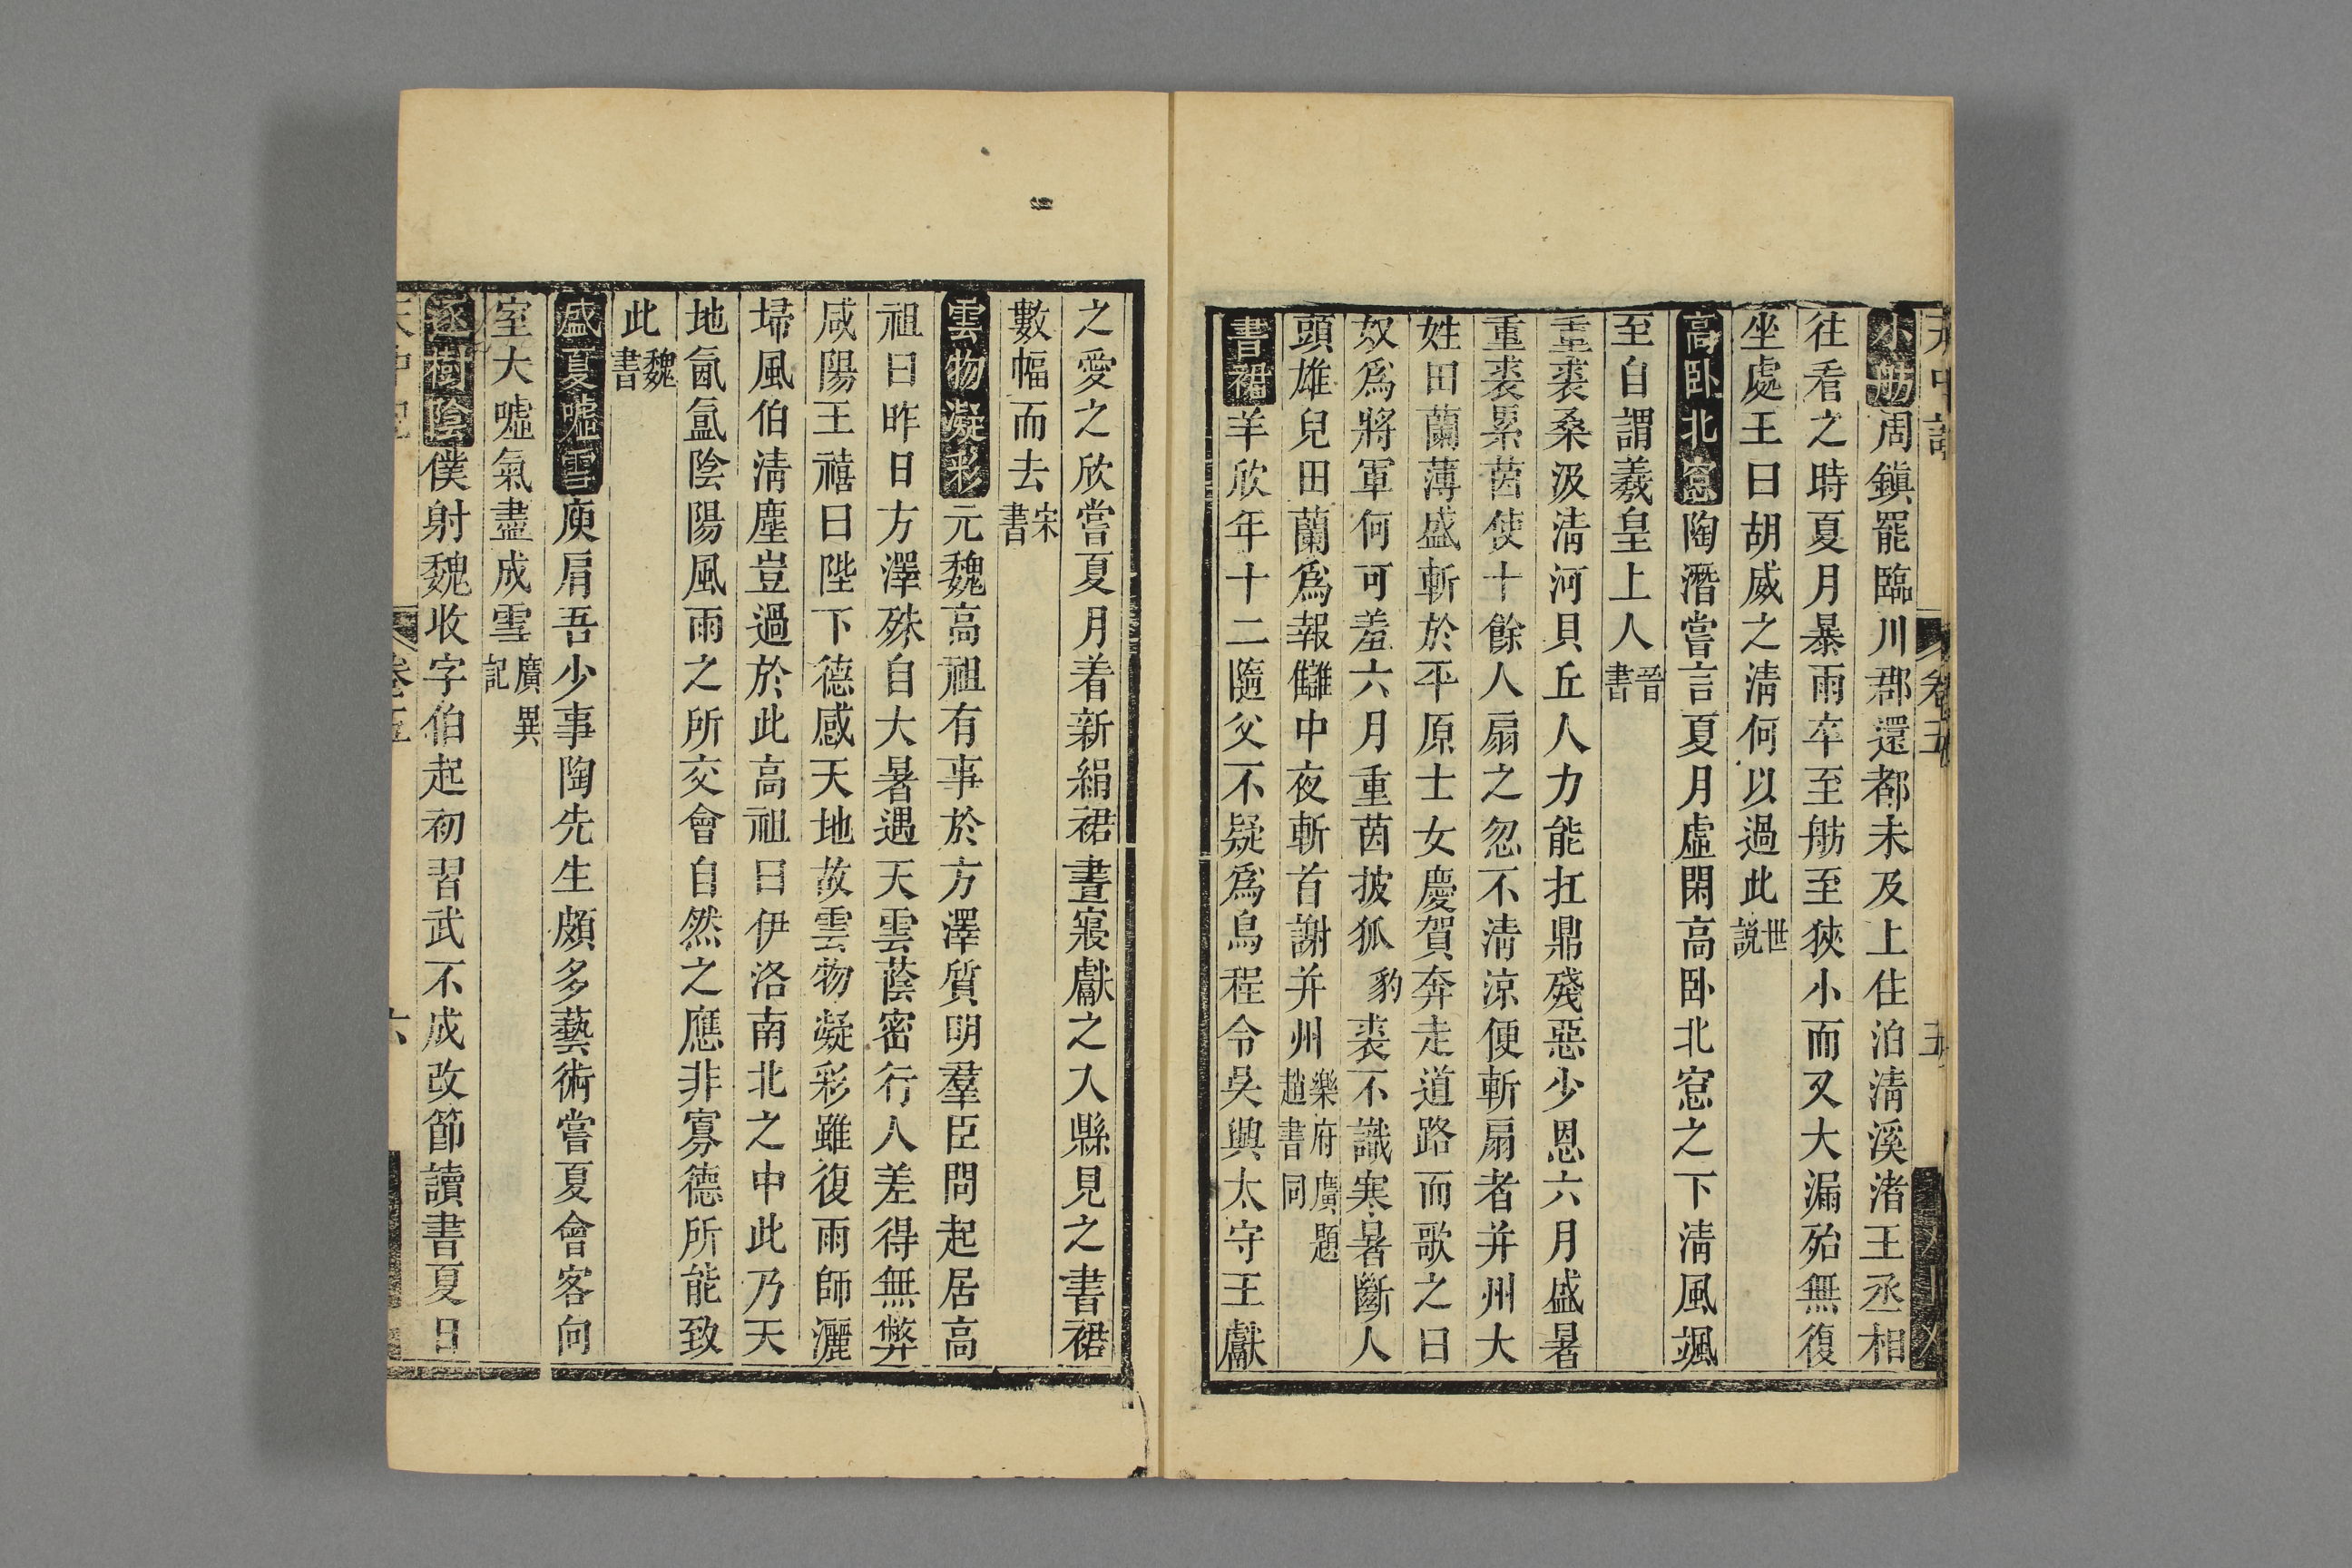 天中記 卷五 五
小舫周鎮罷臨川郡還都未及上住泊淸溪渚王丞相
往看之時夏月暴雨卒至舫至狹小而又大漏殆無復
坐處王曰胡威之淸何以過此世說
高臥北窓陶潛嘗言夏月虛閑高臥北窓之下淸風颯
至自謂羲皇上人晉書
重裘桑汲淸河貝丘人力能扛鼎殘惡少恩六月盛暑
重裘累茵使十餘人扇之忽不淸涼便斬扇者并州大
姓田蘭薄盛斬於平原士女慶賀奔走道路而歌之曰
奴爲將軍何可羞六月重茵披狐豹裘不識寒暑斷人
頭雄兒田蘭爲報讎中夜斬首謝并州樂府廣題趙書同
書裙羊欣年十二隨父不疑爲烏程令吳興太守王獻
之愛之欣嘗夏月着新絹裙晝寢獻之入縣見之書裙
數幅而去宋書
雲物凝彩元魏高祖有事於方澤質明羣臣問起居高
祖曰昨日方澤殊自大暑遇天雲蔭密行人差得無弊
咸陽王禧曰陛下德感天地故雲物凝彩雖復雨師灑
埽風伯淸塵豈過於此高祖曰伊洛南北之中此乃天
地氤氳陰陽風雨之所交會自然之應非寡德所能致
此魏書
盛夏噓雪庾肩吾少事陶先生頗多藝術嘗夏會客向
室大噓氣盡成雪廣異記
逐樹陰僕射魏收字伯起初習武不成改節讀書夏日
天中記 卷五 六